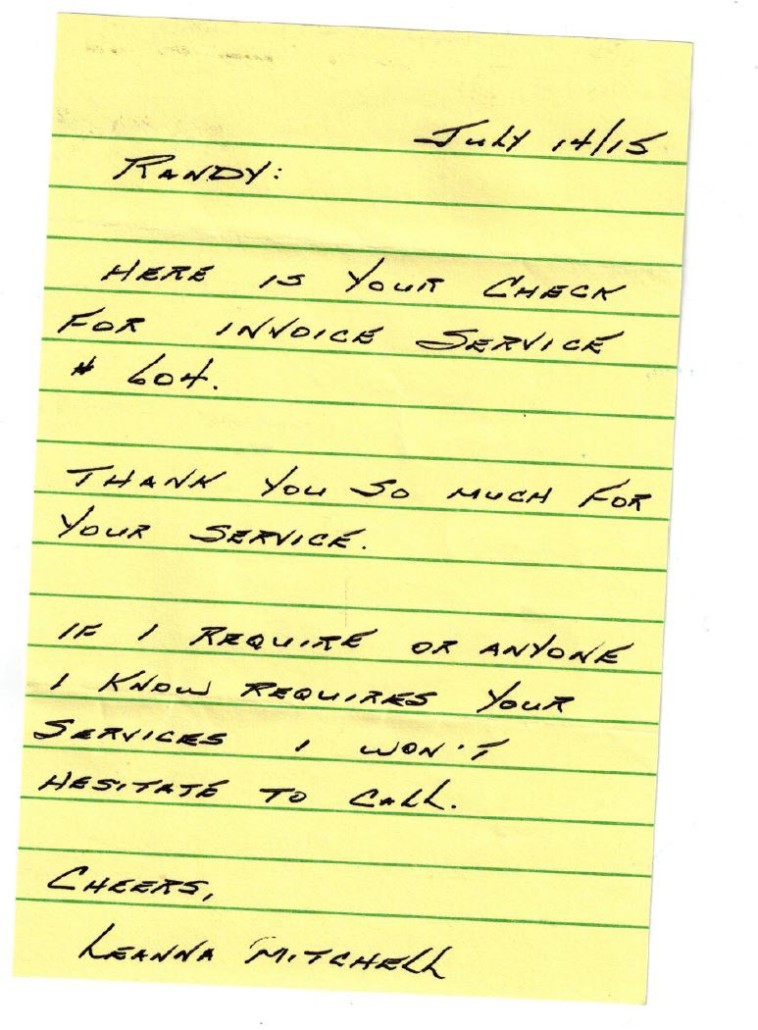 July 14/15
RANDY:
HERE IS YOUR CHECK
FOR INVOICE SERVICE
# 604.
THANK YOU SO MUCH FOR
YOUR SERVICE.
IF I REQUIRE OR ANYONE
I KNOW REQUIRES YOUR
SERVICES I WON'T
HESITATE TO CALL.
CHEERS,
LEANNA MITCHELL